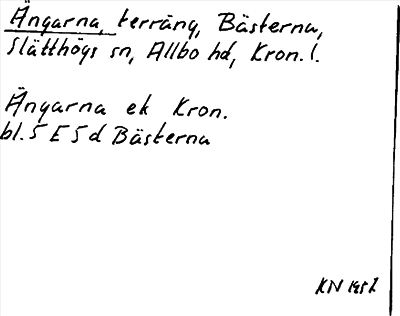 Ängarna, terräng, Bästerna,
Slätthögs sn, Allbo hd, Kron. l.
Ängarna ek Kron.
bl. 5 E 5 d Bästerna
KN